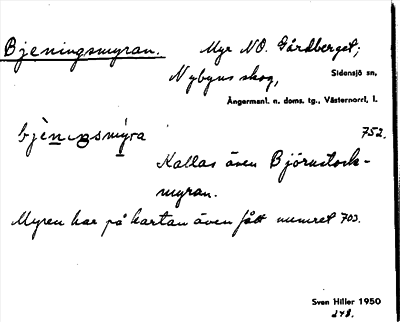 Bjeningsmyran. Myr NO. Gårdberget;
Nybyns skog, Sidensjö sn,
Ångermanl. n. doms. tg., Västernorrl. l.
bjèni̯ŋsmy̱ra 752.
Kallas även Björnstock-
myran.
Myren har på kartan även fått numret 703.
Sven Hiller 1950
248.